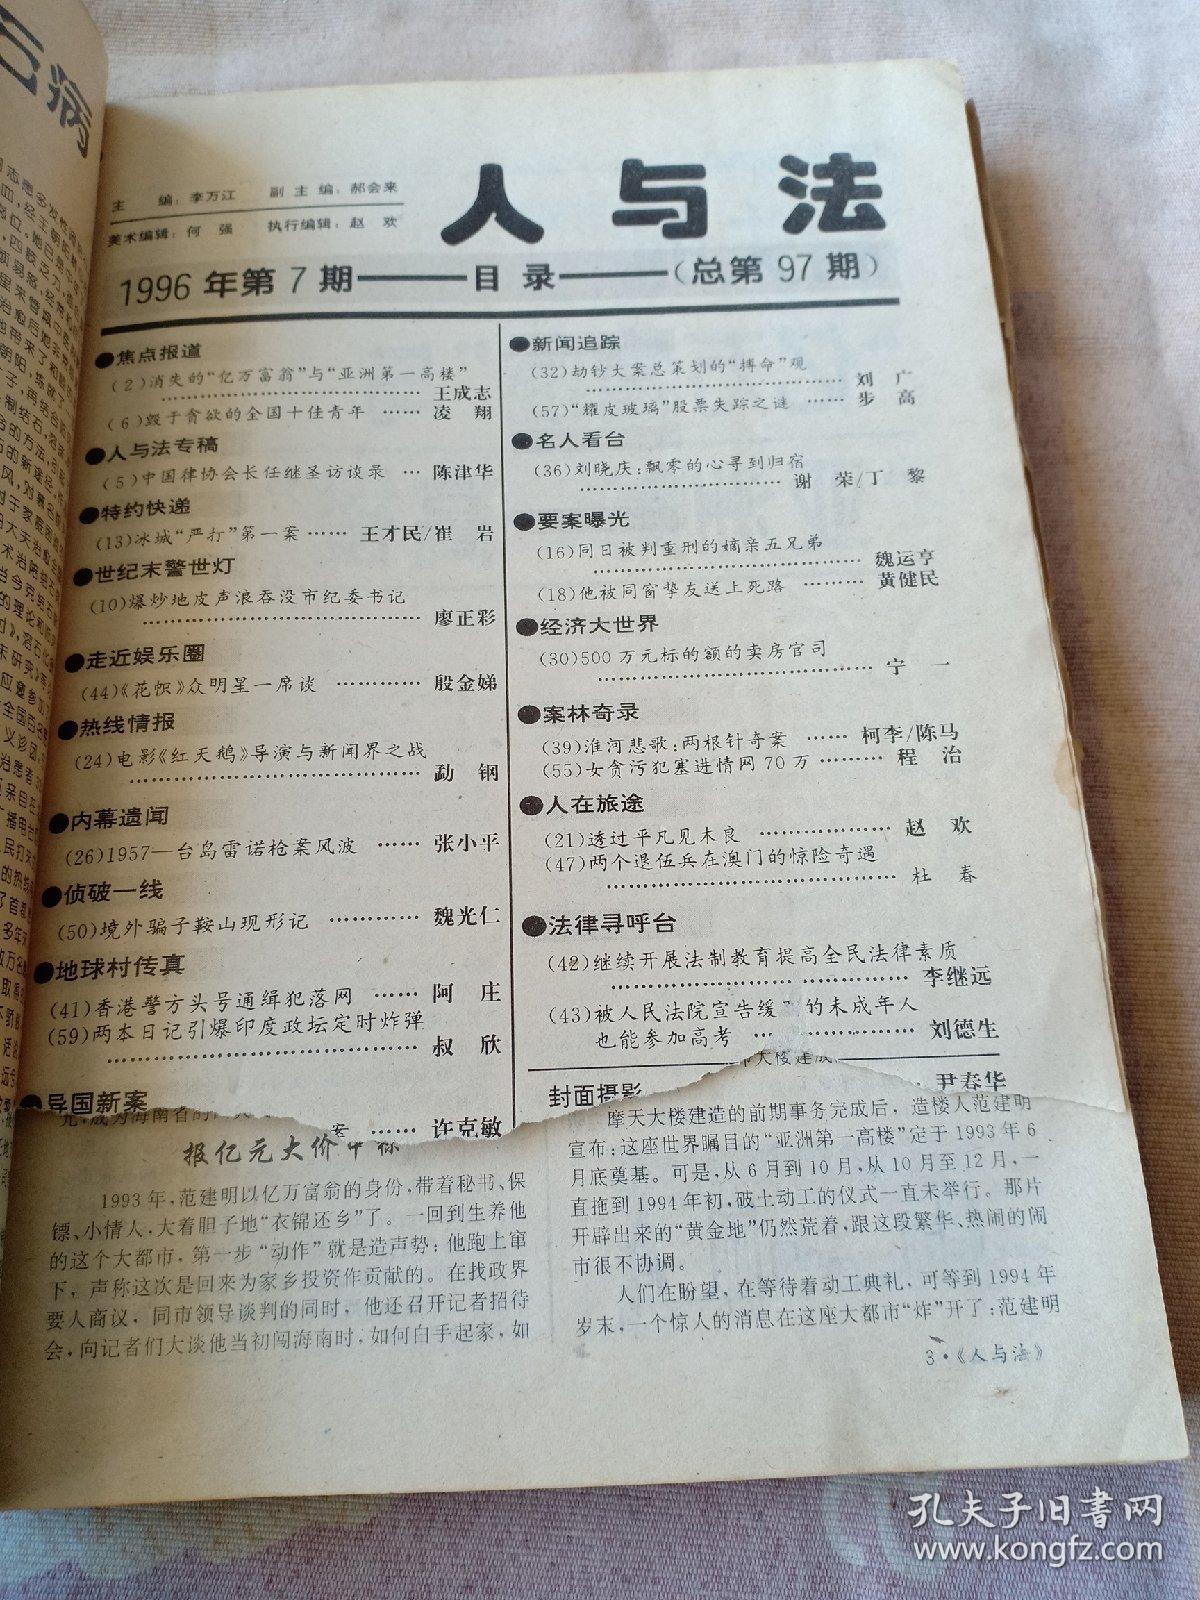 石病
人与法
主　编：李万江　副主编：郝会来
美术编辑：何　强　执行编辑：赵　欢
1996年第7期——目录——（总第97期）
●焦点报道
(2)消失的“亿万富翁”与“亚洲第一高楼”
……王成志
(6)毁于贪欲的全国十佳青年 …… 凌　翔
●人与法专稿
(5)中国律协会长任继圣访谈录 … 陈津华
●特约快递
(13)冰城“严打”第一案 …… 王才民/崔　岩
●世纪末警世灯
(10)爆炒地皮声浪吞没市纪委书记
……廖正彩
●走近娱乐圈
(44)《花帜》众明星一席谈 ………… 殷金娣
●热线情报
(24)电影《红天鹅》导演与新闻界之战
……勐　钢
●内幕遗闻
(26)1957—台岛雷诺枪案风波 …… 张小平
●侦破一线
(50)境外骗子鞍山现形记 ………… 魏光仁
●地球村传真
(41)香港警方头号通缉犯落网 …… 阿　庄
(59)两本日记引爆印度政坛定时炸弹
……叔　欣
●异国新案
案 …… 许克敏
●新闻追踪
(32)劫钞大案总策划的“搏命”观
……刘　广
(57)“耀皮玻璃”股票失踪之谜 …… 步　高
●名人看台
(36)刘晓庆：飘零的心寻到归宿
……谢　荣/丁　黎
●要案曝光
(16)同日被判重刑的嫡亲五兄弟
……魏运亨
(18)他被同窗挚友送上死路 ……… 黄健民
●经济大世界
(30)500万元标的额的卖房官司
……宁　一
●案林奇录
(39)淮河悲歌：两根针奇案 …… 柯李/陈马
(55)女贪污犯塞进情网70万 ……… 程　治
●人在旅途
(21)透过平凡见木良 ……………… 赵　欢
(47)两个退伍兵在澳门的惊险奇遇
……杜　春
●法律寻呼台
(42)继续开展法制教育提高全民法律素质
……李继远
(43)被人民法院宣告缓 的未成年人
也能参加高考 … …………… 刘德生
封面摄影 … 尹春华
报亿元大价
1993年，范建明以亿万富翁的身份，带着秘书、保
镖、小情人，大着胆子地“衣锦还乡”了。一回到生养他
的这个大都市，第一步“动作”就是造声势：他跑上窜
下，声称这次是回来为家乡投资作贡献的。在找政界
要人商议，同市领导谈判的同时，他还召开记者招待
会，向记者们大谈他当初闯海南时，如何白手起家，如
摩天大楼建造的前期事务完成后，造楼人范建明
宣布：这座世界瞩目的“亚洲第一高楼”定于1993年6
月底奠基。可是，从6月到10月，从10月至12月，一
直拖到1994年初，破土动工的仪式一直未举行。那片
开辟出来的“黄金地”仍然荒着，跟这段繁华、热闹的闹
市很不协调。
人们在盼望，在等待着动工典礼，可等到1994年
岁末，一个惊人的消息在这座大都市“炸”开了：范建明
3·《人与法》
孔夫子旧书网
www.kongfz.com